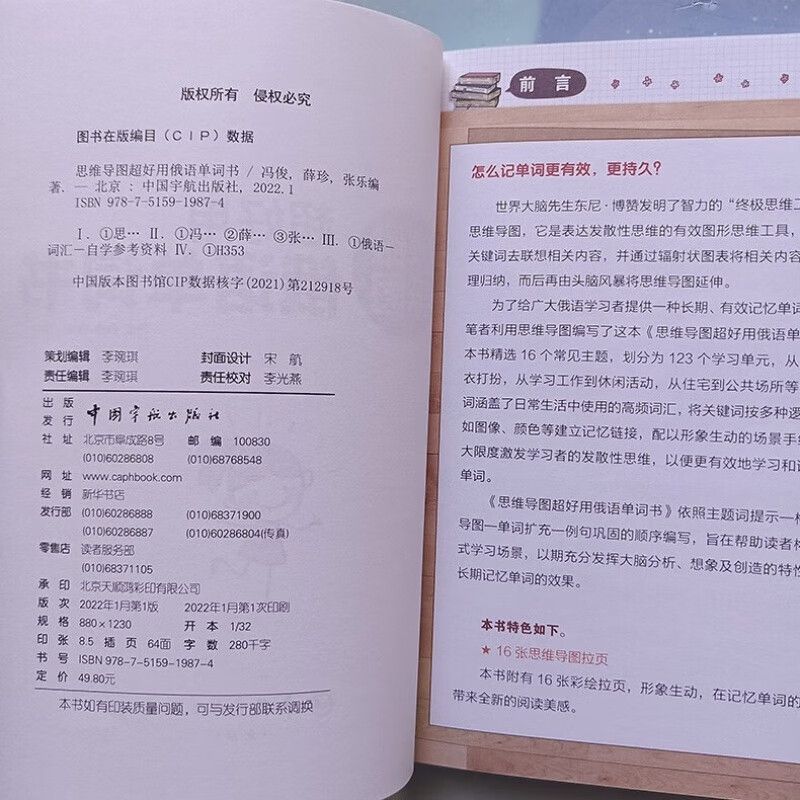 版权所有 侵权必究
图书在版编目（CIP）数据
思维导图超好用俄语单词书 / 冯俊，薛珍，张乐编
著. — 北京：中国宇航出版社，2022.1
ISBN 978-7-5159-1987-4
Ⅰ. ①思… Ⅱ. ①冯… ②薛… ③张… Ⅲ. ①俄语－
词汇－自学参考资料 Ⅳ. ①H353
中国版本图书馆CIP数据核字(2021)第212918号
策划编辑 李琬琪 封面设计 宋 航
责任编辑 李琬琪 责任校对 李光燕
出版
发行 中国宇航出版社
社址 北京市阜成路8号 邮编 100830
(010)60286808 (010)68768548
网址 www.caphbook.com
经销 新华书店
发行部 (010)60286888 (010)68371900
(010)60286887 (010)60286804(传真)
零售店 读者服务部
(010)68371105
承印 北京天顺鸿彩印有限公司
版次 2022年1月第1版 2022年1月第1次印刷
规格 880×1230 开本 1/32
印张 8.5 插页 64面 字数 280千字
书号 ISBN 978-7-5159-1987-4
定价 49.80元
本书如有印装质量问题，可与发行部联系调换
前言
怎么记单词更有效，更持久？
世界大脑先生东尼·博赞发明了智力的“终极思维工
思维导图，它是表达发散性思维的有效图形思维工具，
关键词去联想相关内容，并通过辐射状图表将相关内容
理归纳，而后再由头脑风暴将思维导图延伸。
为了给广大俄语学习者提供一种长期、有效记忆单词
笔者利用思维导图编写了这本《思维导图超好用俄语单
本书精选 16 个常见主题，划分为 123 个学习单元，从
衣打扮，从学习工作到休闲活动，从住宅到公共场所等
词涵盖了日常生活中使用的高频词汇，将关键词按多种逻
如图像、颜色等建立记忆链接，配以形象生动的场景手绘
大限度激发学习者的发散性思维，以便更有效地学习和记
单词。
《思维导图超好用俄语单词书》依照主题词提示一
导图一单词扩充一例句巩固的顺序编写，旨在帮助读者
式学习场景，以期充分发挥大脑分析、想象及创造的特性
长期记忆单词的效果。
本书特色如下。
★ 16 张思维导图拉页
本书附有 16 张彩绘拉页，形象生动，在记忆单词的
带来全新的阅读美感。